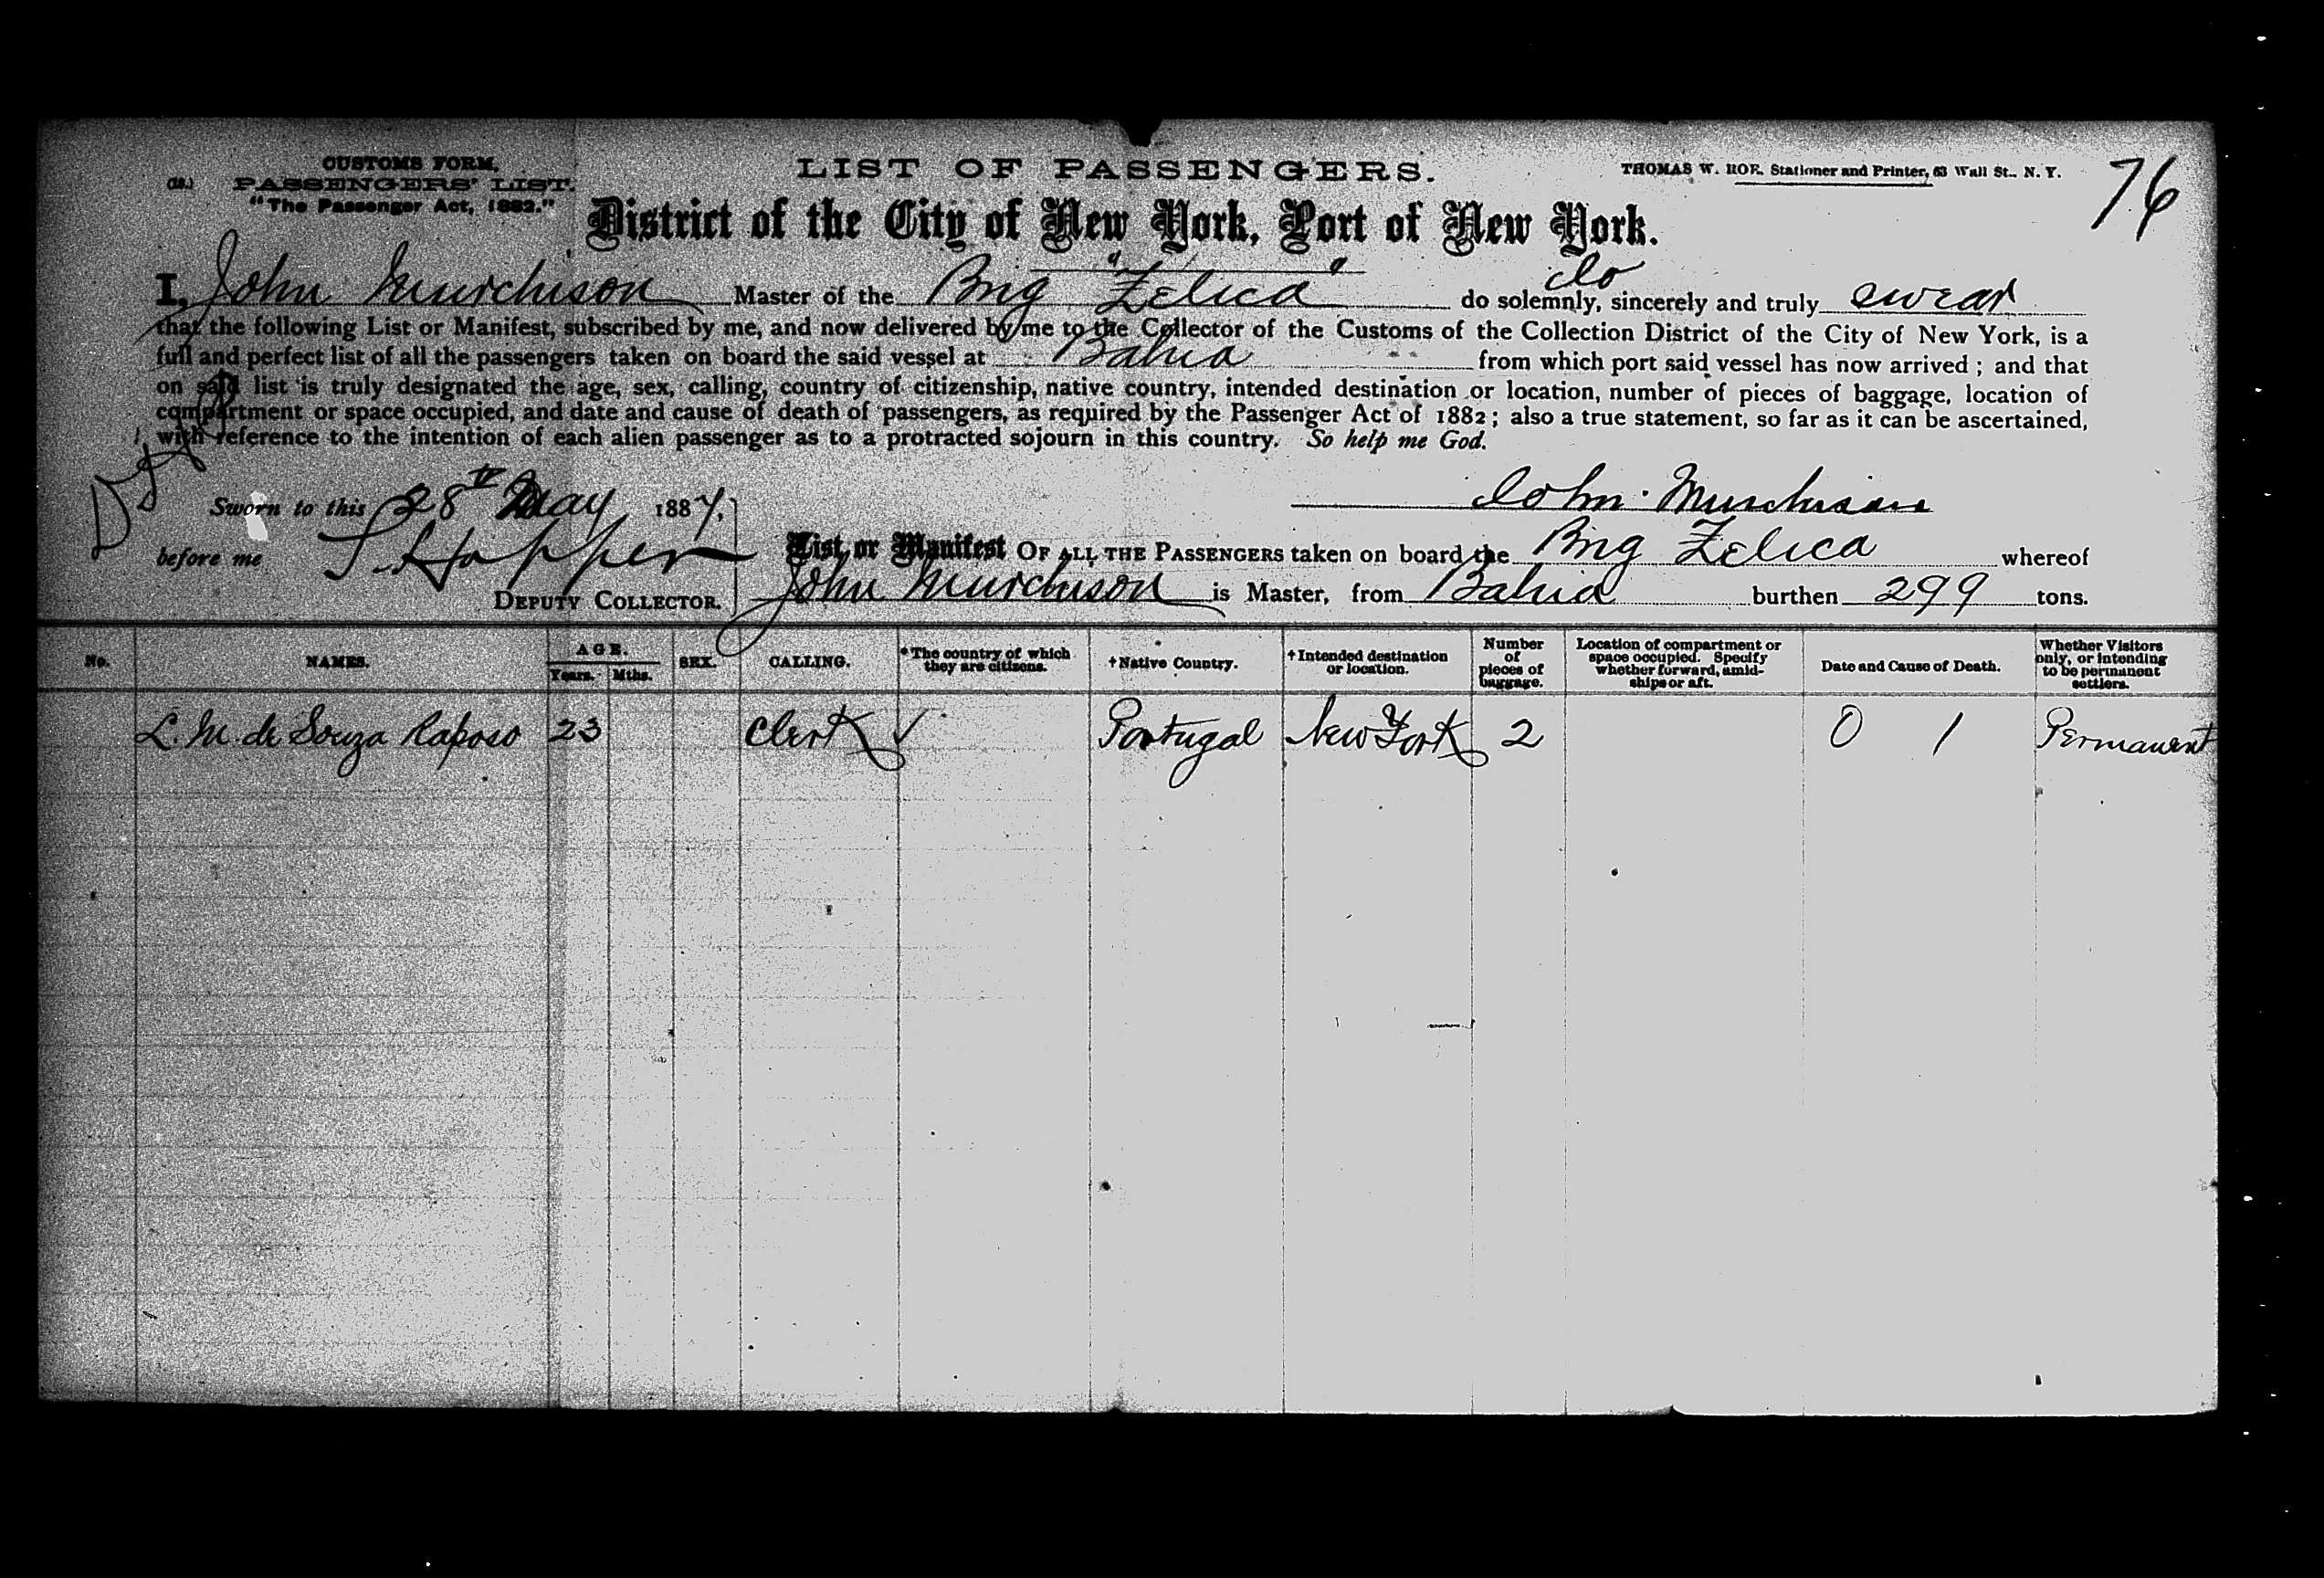 CUSTOMS FORM.
PASSENGERS' LIST.
"The Passenger Act, 1882."
LIST OF PASSENGERS.
THOMAS W. ROE, Stationer and Printer, 63 Wall St., N. Y.
76
District of the City of New York, Port of New York.
I, John Murchison Master of the Brig "Zelica" do solemnly, sincerely and truly do swear
that the following List or Manifest, subscribed by me, and now delivered by me to the Collector of the Customs of the Collection District of the City of New York, is a
full and perfect list of all the passengers taken on board the said vessel at Bahia from which port said vessel has now arrived; and that
on said list is truly designated the age, sex, calling, country of citizenship, native country, intended destination or location, number of pieces of baggage, location of
compartment or space occupied, and date and cause of death of passengers, as required by the Passenger Act of 1882; also a true statement, so far as it can be ascertained,
with reference to the intention of each alien passenger as to a protracted sojourn in this country. So help me God.
Sworn to this 28th May 1887,
John Murchison
before me T. Hopper
DEPUTY COLLECTOR.
List or Manifest OF ALL THE PASSENGERS taken on board the Brig Zelica whereof
John Murchison is Master, from Bahia burthen 299 tons.
No. NAMES. AGE. Years. Mths. SEX. CALLING. *The country of which they are citizens. †Native Country. †Intended destination or location. Number of pieces of baggage. Location of compartment or space occupied. Specify whether forward, amidships or aft. Date and Cause of Death. Whether Visitors only, or intending to be permanent settlers.
L. M. de Souza Raposo 23 Clerk ✓ Portugal New York 2 0 1 Permanent